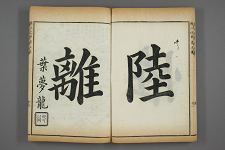 陸
離
葉夢龍